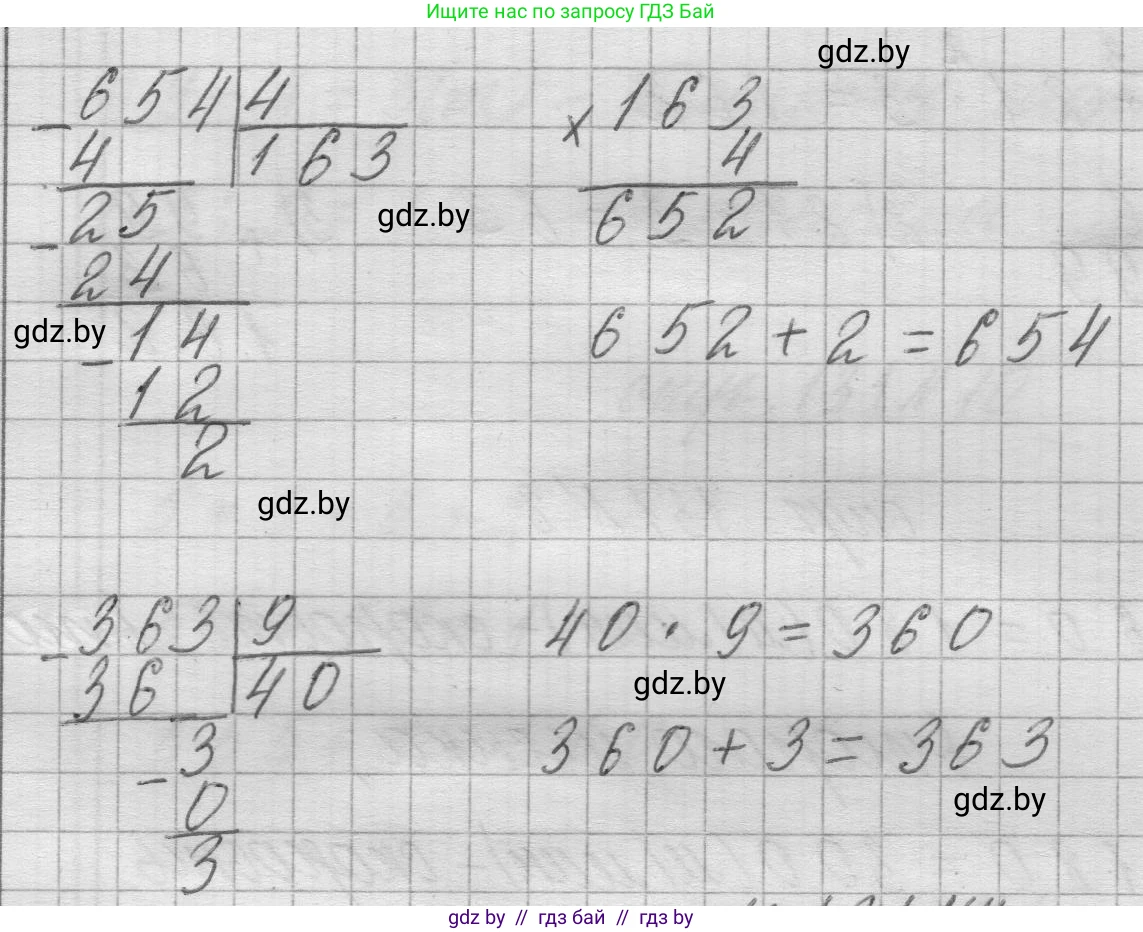 Ищите нас по запросу ГДЗ Бай
gdz.by
- 654 | 4
4 | 163
- 25
24
gdz.by
- 14
12
2
× 163
4
652
gdz.by
652 + 2 = 654
gdz.by
- 363 | 9
36 | 40
- 3
0
3
40 · 9 = 360
gdz.by
360 + 3 = 363
gdz.by
gdz by // гдз бай // гдз by